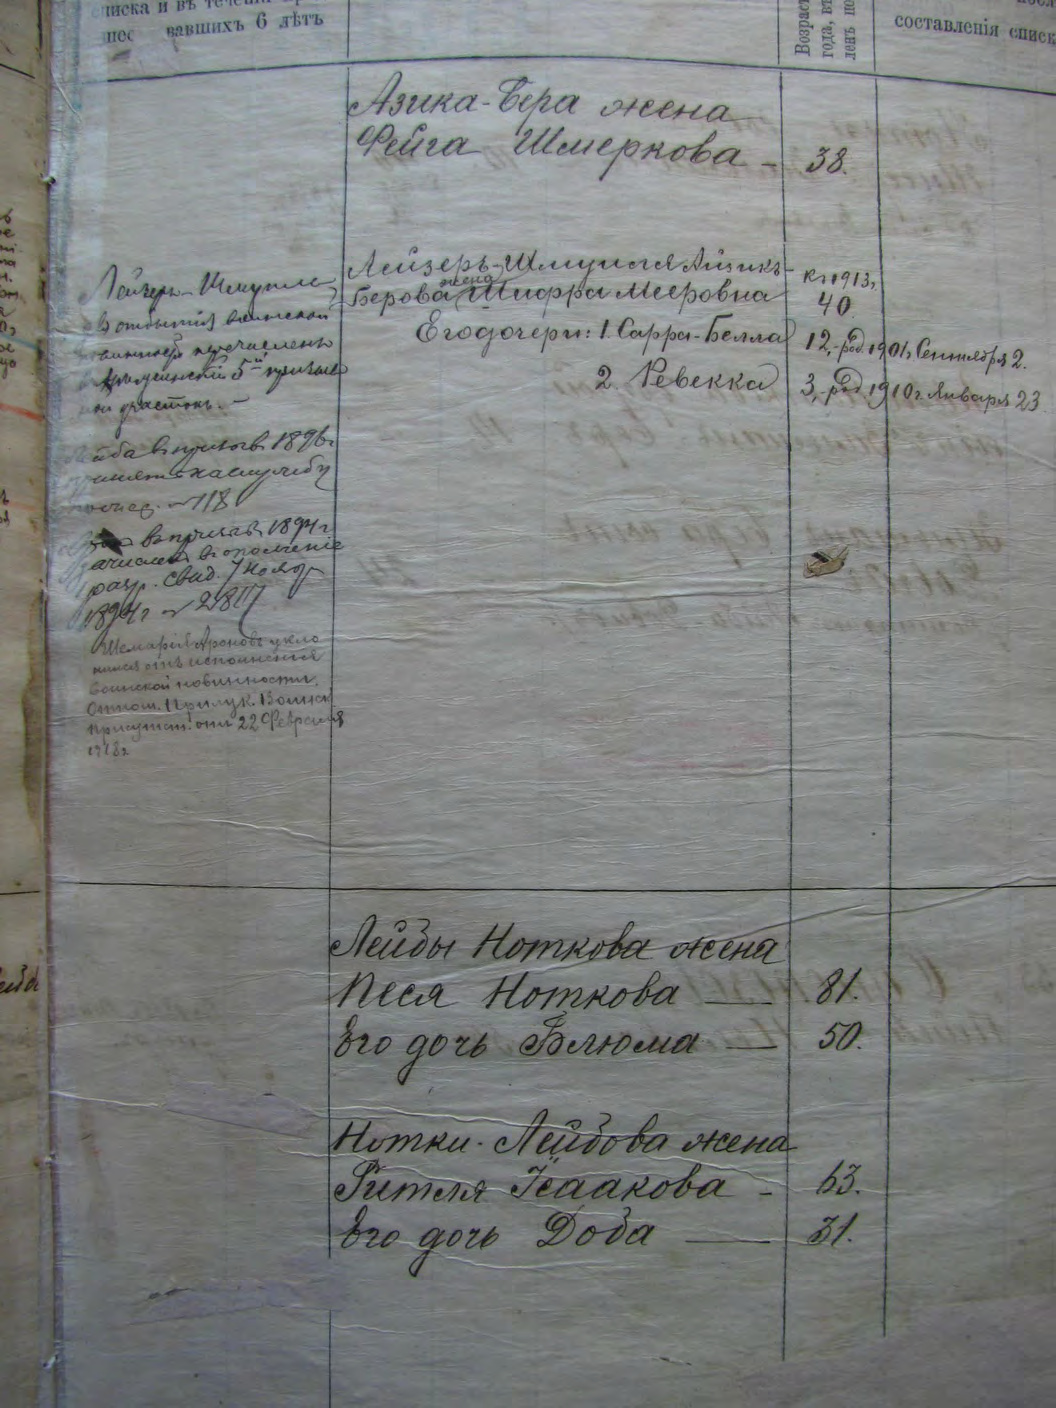 списка и въ теченіи
вавшихъ 6 лѣтъ
Возраст
года, въ
ленъ по
составленія списк
Азика-Бера жена
Фейга Шмеркова - 38.
Лейзеръ-Шмуиля Айзикъ-
Берова жена Шифра Мееровна
къ 1913 г.
40.
Его дочери: 1. Сарра-Белла 12, род. 1901 г. Сентября 2.
2. Ревекка 3, род. 1910 г. Января 23
Лейзеръ-Шмуиль
въ отбытія воинской
повинности перечисленъ
5й призыв
ной участокъ. -
Лейба въ призывъ 1896 г.
принятъ на службу
118
въ призывъ 1894 г.
зачисленъ въ ополченіе
разр. Свид. 7 Нояб
1894 г.
Шемарія Ароновъ укло
нился отъ исполненія
воинской повинности.
Отнош. Прилук. Воинск
Присутст. отъ 22 Февраля
1918 г.
Лейбы Ноткова жена
Песя Ноткова — 81.
Его дочь Блюма — 50.
Нотки-Лейбова жена
Ритля Ісаакова - 63.
Его дочь Доба — 31.